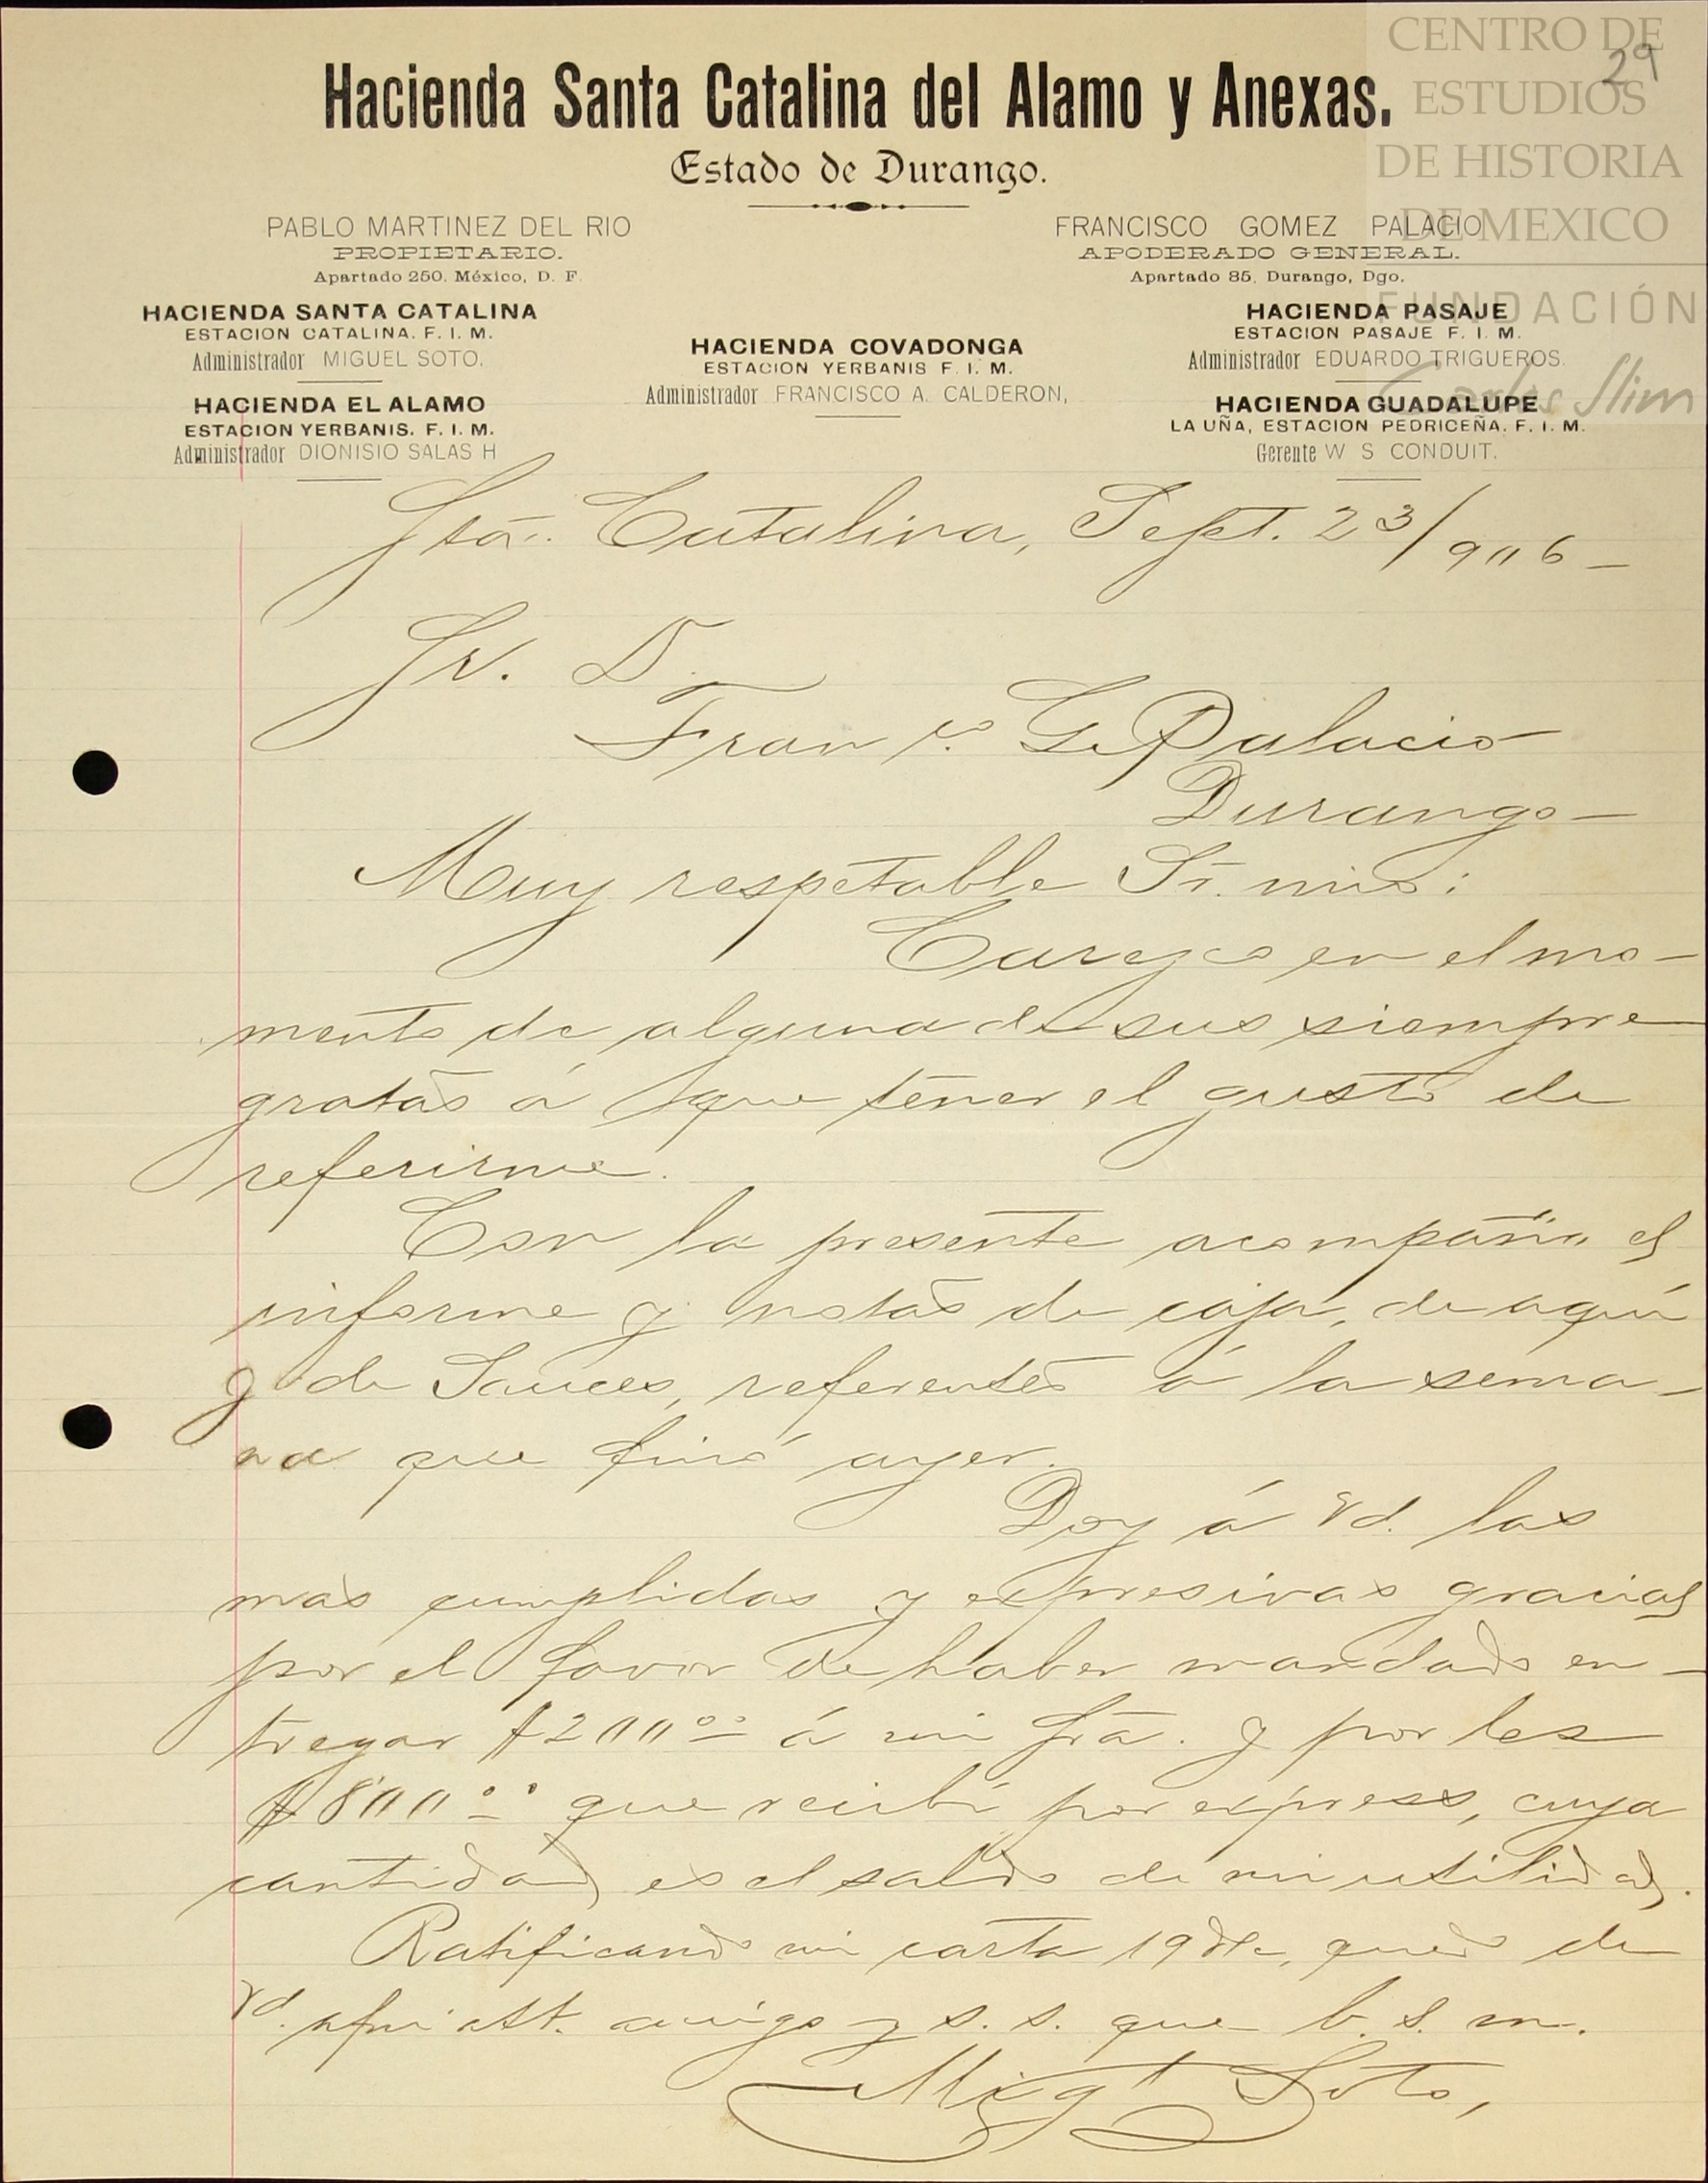 CENTRO DE
ESTUDIOS
DE HISTORIA
DE MEXICO
FUNDACIÓN
Carlos Slim
29
Hacienda Santa Catalina del Alamo y Anexas.
Estado de Durango.
PABLO MARTINEZ DEL RIO
PROPIETARIO.
Apartado 250. México, D. F.
FRANCISCO GOMEZ PALACIO
APODERADO GENERAL.
Apartado 85, Durango, Dgo.
HACIENDA SANTA CATALINA
ESTACION CATALINA. F. I. M.
Administrador MIGUEL SOTO.
HACIENDA EL ALAMO
ESTACION YERBANIS. F. I. M.
Administrador DIONISIO SALAS H
HACIENDA COVADONGA
ESTACION YERBANIS F. I. M.
Administrador FRANCISCO A. CALDERON,
HACIENDA PASAJE
ESTACION PASAJE F. I. M.
Administrador EDUARDO TRIGUEROS.
HACIENDA GUADALUPE
LA UÑA, ESTACION PEDRICEÑA. F. I. M.
Gerente W S CONDUIT.
Sta. Catalina, Sept. 23/906—
Sr. D.
Franco. G. Palacio
Durango—
Muy respetable Sr. mio:
Carezco en el mo-
mento de alguna de sus siempre
gratas á que tener el gusto de
referirme.
Con la presente acompaño el
informe y notas de caja, de aquí
y de Sauces, referentes á la sema-
na que finó ayer.
Doy á Vd. las
mas cumplidas y expresivas gracias
por el favor de haber mandado en-
tregar $200.oo á mi Sra. y por los
$800.oo que recibí por express, cuya
cantidad es el saldo de mi utilidad.
Ratificando mi carta 19 de, quedo de
Vd. afmo att. amigo y s. s. que b. s. m.
Migl Soto,